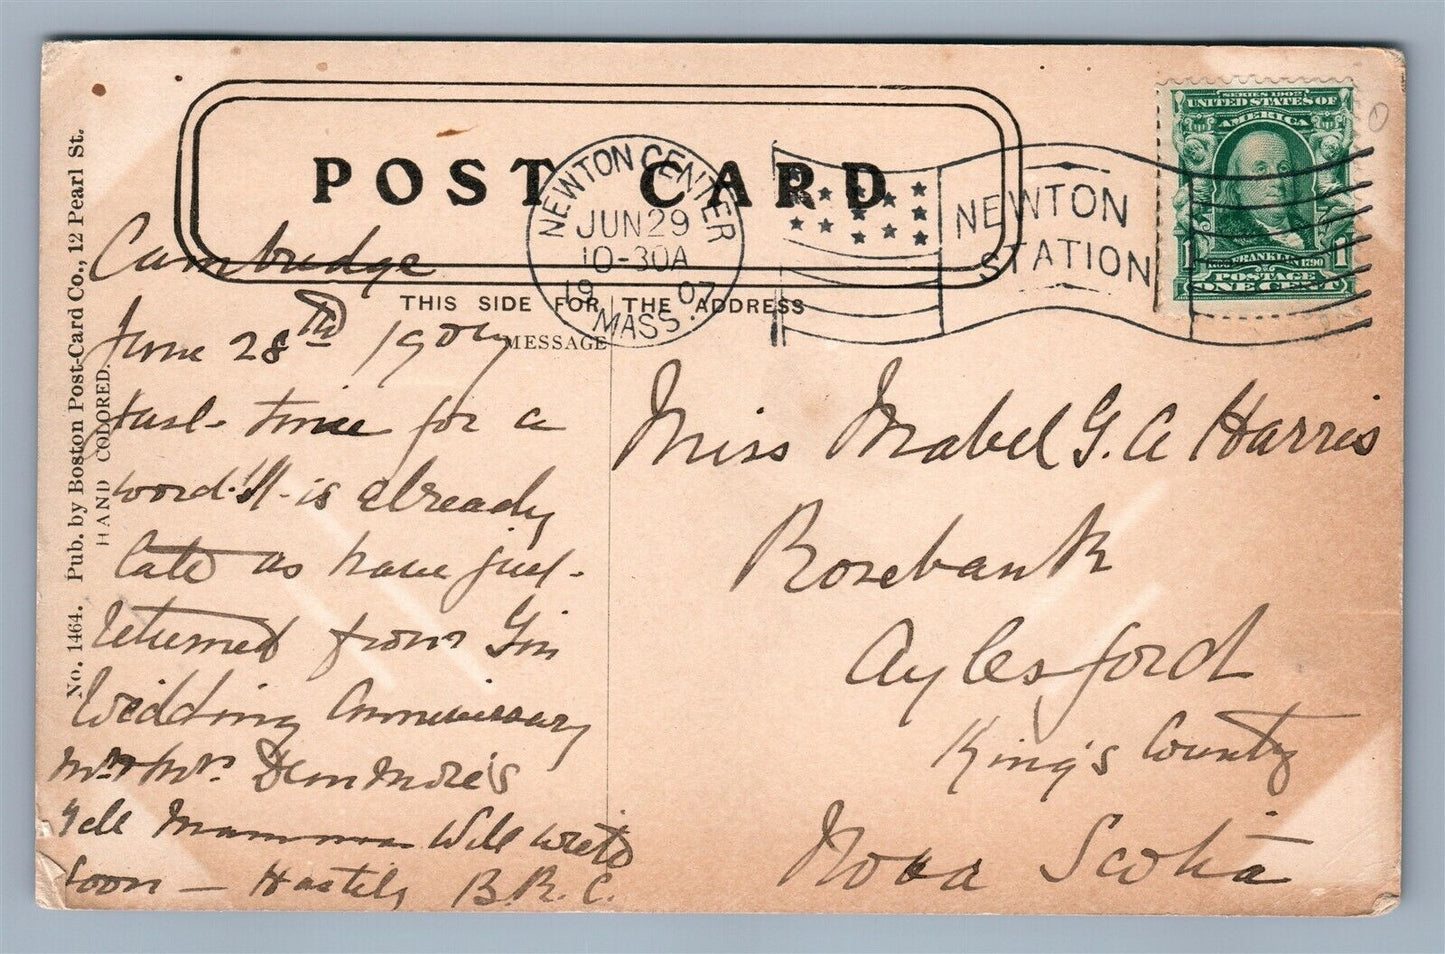 POST CARD
THIS SIDE FOR THE ADDRESS
MESSAGE
No. 1464. Pub. by Boston Post-Card Co., 12 Pearl St.
HAND COLORED.
NEWTON CENTER
JUN 29
10-30A
1907
MASS.
NEWTON
STATION
SERIES 1902
UNITED STATES OF
AMERICA
FRANKLIN 1790
POSTAGE
1 1
ONE CENT
Cambridge
June 28th 1907
Just time for a
word. It is already
late as have just
returned from
Wedding Anniversary
Mr & Mrs Denmore's
Tell Mamma Will write
soon — Hastily B.R.C.
Miss Mabel G. A Harris
Rosebank
Aylesford
King's County
Nova Scotia